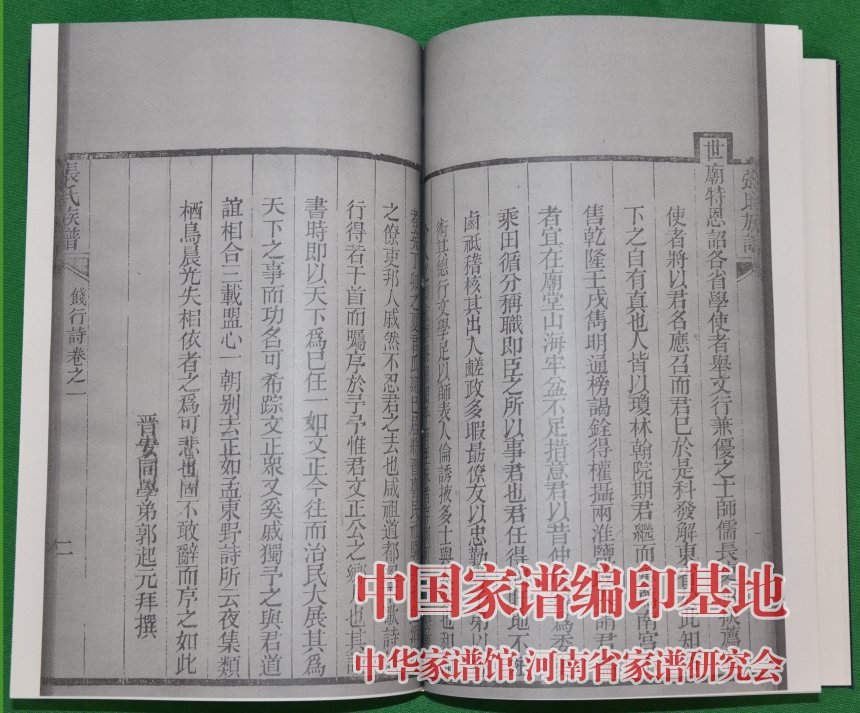 張氏族譜
世廟特恩詔各省學使者舉文行兼優之士師儒長族薦
使者將以君名應召而君已於是科發解東此知
下之自有真也人皆以瓊林翰院期君繼而南宮
售乾隆壬戌雋明通榜謁銓得權攝兩淮鹽君
者宜在廟堂山海牢盆不足措意君以昔仲為委
乘田循分稱職即臣之所以事君也君任得地不
鹵祗稽核其出入鹺政多暇勗僚友以忠勤以
術其德行文學足以師表人倫誘掖多士與也和
之僚吏邦人戚然不忍君之去也咸祖道都歌詩
行得若干首而屬序於予予惟君文正公之也其讀
書時即以天下爲已任一如文正今往而治民大展其爲
天下之事而功名可希踪文正衆又奚戚獨予之與君道
誼相合三載盟心一朝別去正如孟東野詩所云夜集類
栖鳥晨光失相依者之爲可悲也國不敢辭而序之如此
晋安同學弟郭起元拜撰
張氏族譜
餞行詩卷之一
二
中国家谱编印基地
中华家谱馆 河南省家谱研究会